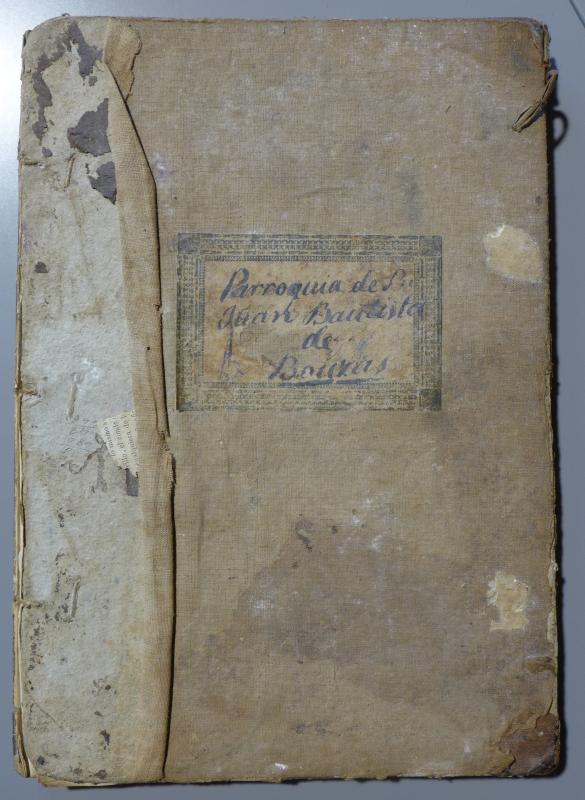 Parroquia de Sn
Juan Bautista
de
Bouzas